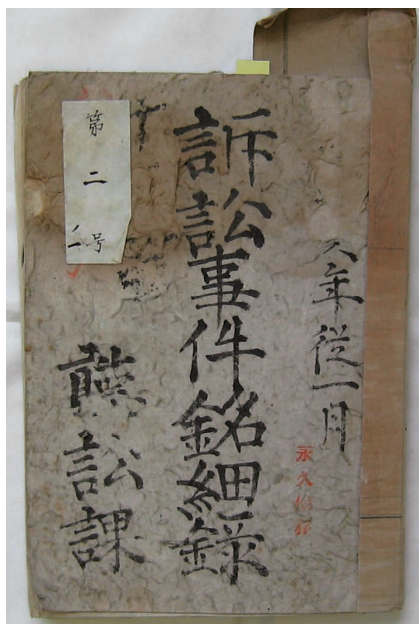 六年従一月
永久保存
訴訟事件銘細録
聴訟課
第二号